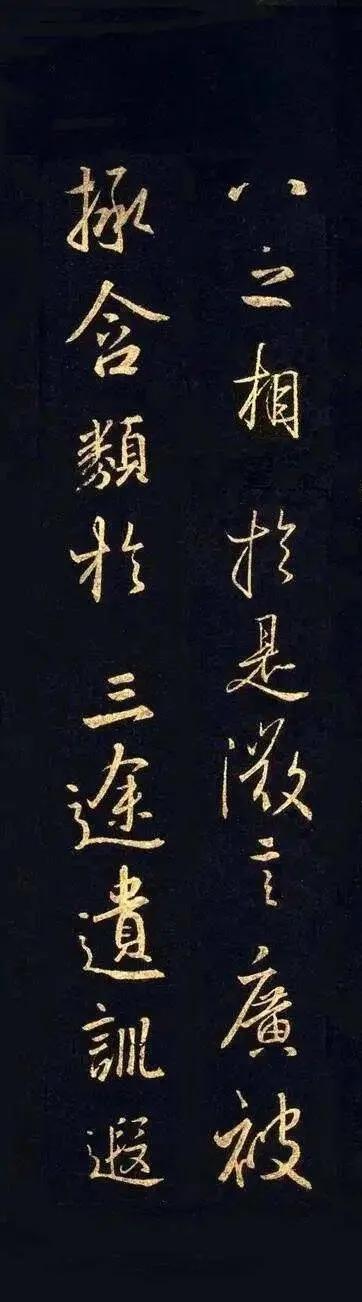 八之相於是微言廣被
拯含類於三途遺訓遐